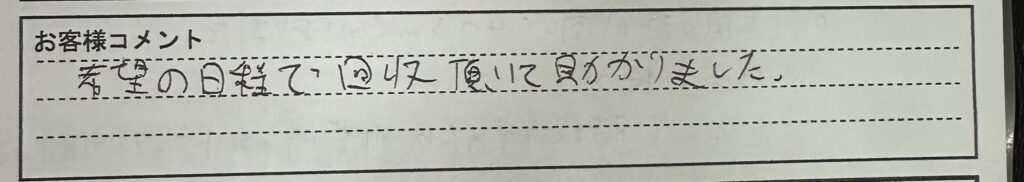 お客様コメント
希望の日程で回収頂いて助かりました。